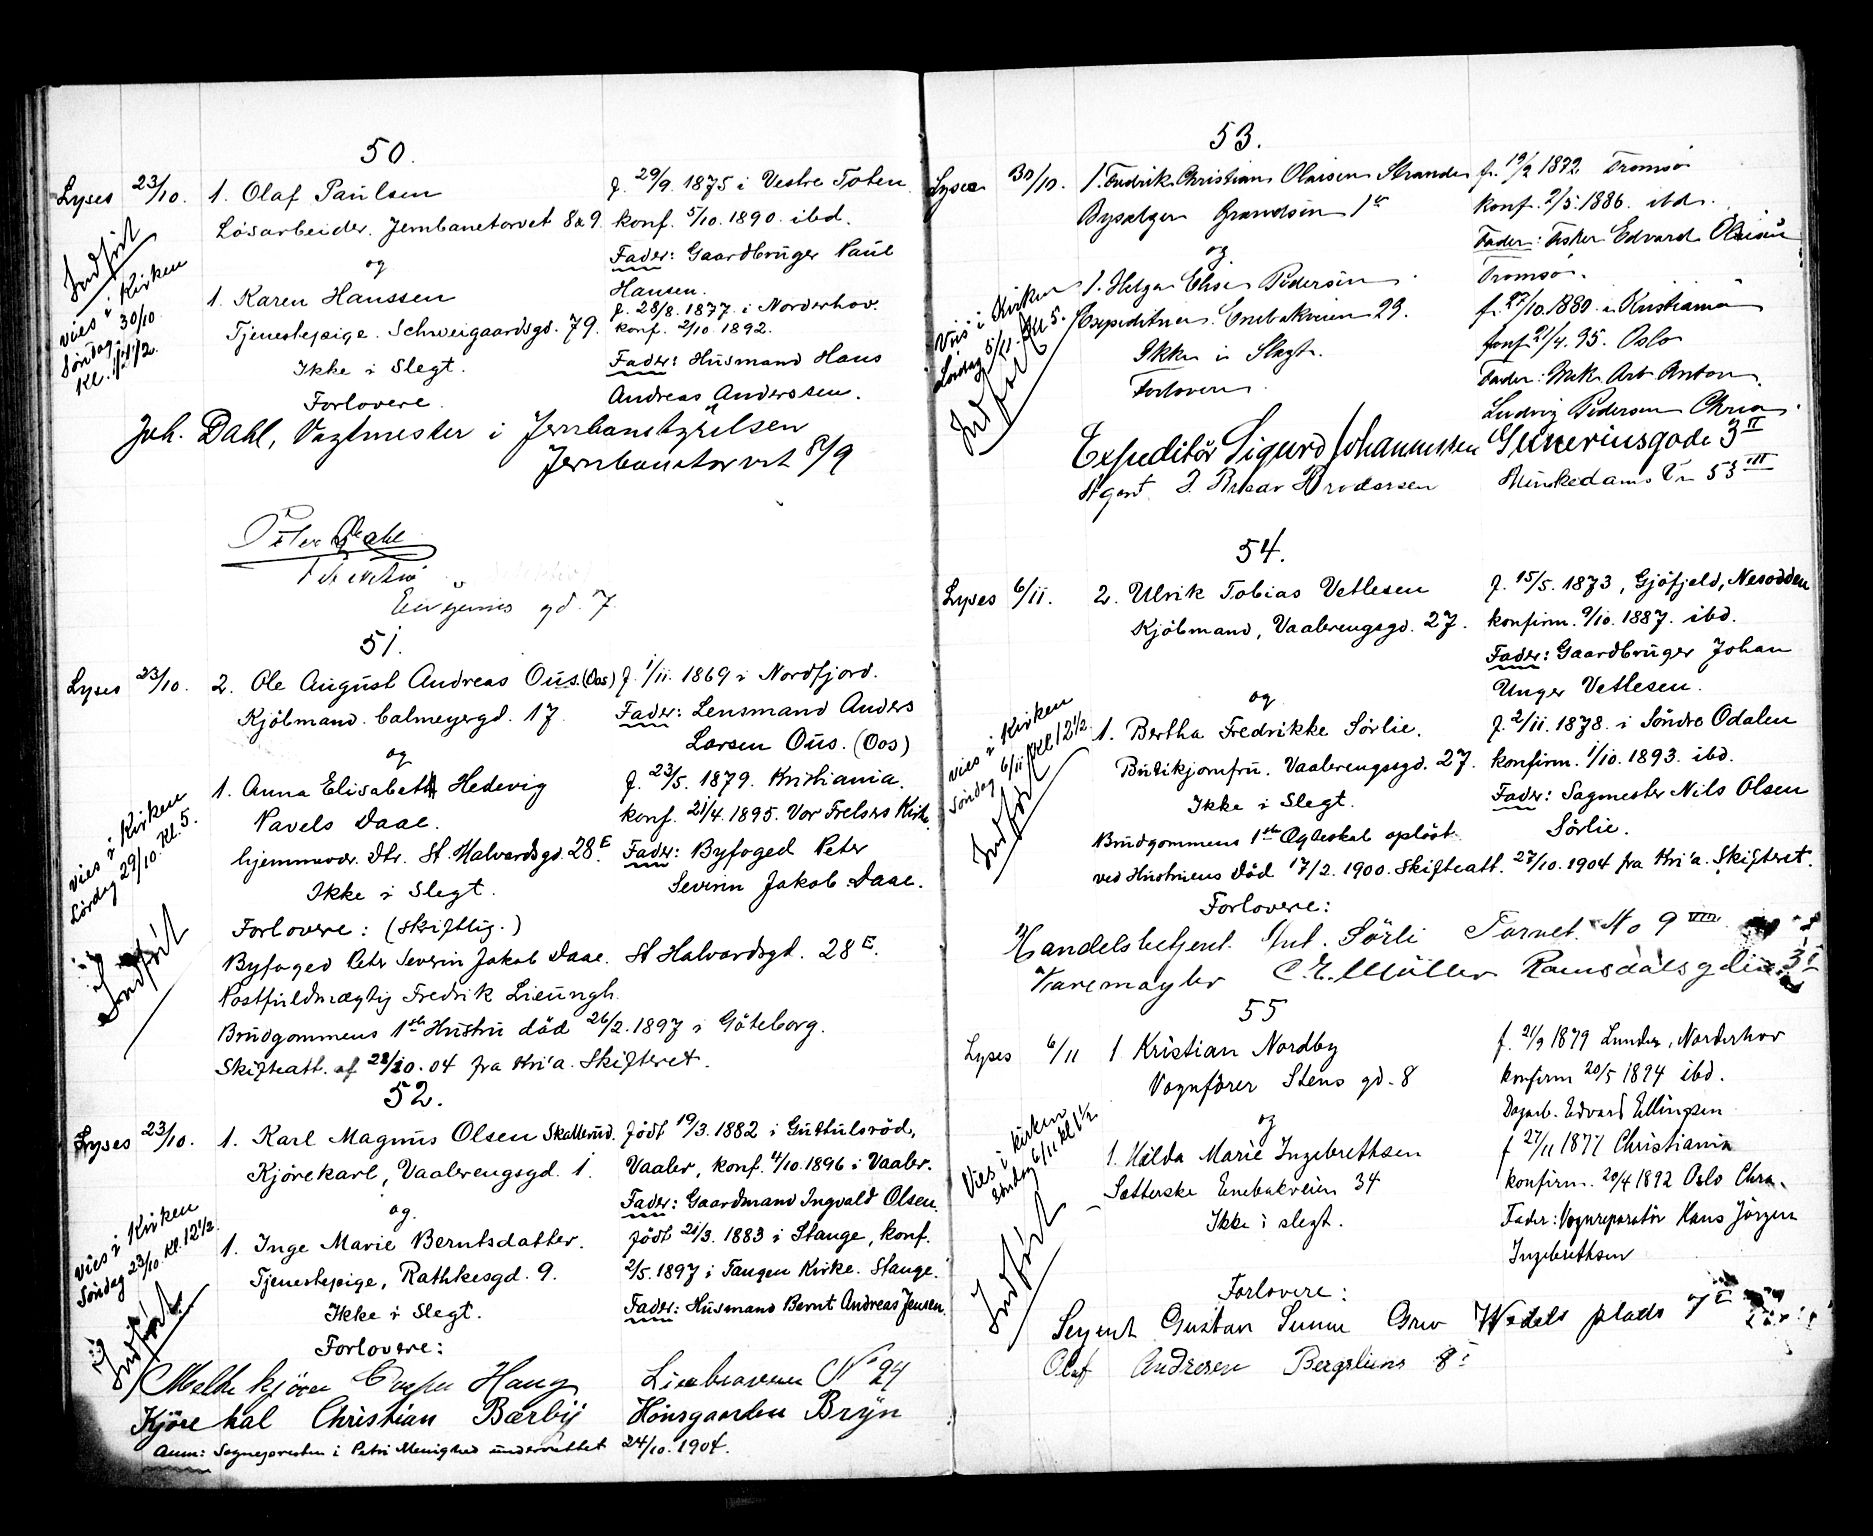 50.
Lyses 23/10. 1. Olaf Paulsen f. 29/9. 1875 i Vestre Toten
Løsarbeider. Jernbanetorvet 8 a 9. konf. 5/10. 1890. ibd.
og Fader: Gaardbruger Paul
Hansen.
Indført
Vies i Kirken
Søndag 30/10
Kl. 1 1/2.
1. Karen Hanssen f. 28/8. 1877. i Norderhov.
Tjenestepige. Schweigaardsgd. 79. konf. 2/10 1892.
Ikke i Slegt. Fader: Husmand Hans
Forlovere. Andreas Anderssen.
Joh. Dahl, Vagtmester i Jernbanestyrelsen
Jernbanetorvet 8/9
Peter Dahl
Eugenies gd. 7
51.
Lyses 23/10. 2. Ole August Andreas Ous. (Oos) f. 1/11. 1869 i Nordfjord.
Kjøbmand. Calmeyergd. 17 Fader: Lensmand Anders
og Larsen Ous. (Oos)
1. Anna Elisabeth Hedevig f. 23/5. 1879. Kristiania.
Pavels Daae. konf. 21/4. 1895. Vor Frelsers Kirke.
hjemmevær. Dtr. St. Halvardsgd. 28 E. Fader: Byfoged Peter
Ikke i Slegt. Severin Jakob Daae.
Vies i Kirken
Lørdag 29/10. Kl. 5.
Indført
Forlovere: (skiftlig.)
Byfoged Peter Severin Jakob Daae. St Halvardsgd. 28 E.
Postfuldmægtig Fredrik Lieungh.
Brudgommens 1ste Hustru død 26/2. 1897 i Göteborg.
Skifteatt. af 28/10. 04 fra Kri'a. Skifteret.
52.
Lyses 23/10. 1. Karl Magnus Olsen Skallerud. Født 19/3. 1882 i Guttulsrød,
Kjørekarl, Vaalerengsgd. 1. Vaaler, konf. 4/10. 1896 i Vaaler.
og Fader: Gaardmand Ingvald Olsen.
1. Inge Marie Berntsdatter. Født 21/3. 1883 i Stange, konf.
Tjenestepige, Rathkesgd. 9. 2/5. 1897 i Tangen Kirke. Stange.
Ikke i Slegt. Fader: Husmand Bernt Andreas Jensen.
Vies i Kirken
Søndag 23/10. Kl. 12 1/2.
Indført
Forlovere:
Melkekjører Haug No 94
Kjørekal Christian Bærby Hønsgaarden Bryn
Anm: Sognepresten i Petri Menighed underrettet 24/10. 1904.
53.
Lyses 30/10. 1. Fredrik Christian Olaisen Strande f. 19/2 1872 Tromsø
Bysælger Grændsen 1 konf. 2/5. 1886. ibd.
og Fader: Fisker Edvard Olaisen
Tromsø.
1. Helga Elise Pedersen f. 27/10. 1880. i Kristiania
Expeditrice. Enebakveien 29. konf 21/4. 95. Oslo
Ikke i Slegt. Fader: Mek. Arb Anton
Forlovere. Ludvig Pedersen Chria.
Vies i Kirken
Lørdag 5/11. Kl 5.
Indført
Expeditør Sigurd Johannessen Guneriusgade 3 II
Agent Brodersen Munkedams Vn 53 III
54.
Lyses 6/11. 2. Ulrik Tobias Vetlesen f. 15/5. 1873, Gjøfjeld, Nesodden
Kjøbmand, Vaalerengsgd. 27. konfirm. 9/10. 1887. ibd.
Fader: Gaardbruger Johan
og Unger Vetlesen.
1. Bertha Fredrikke Sørlie. f. 2/11. 1878. i Søndre Odalen
Butikjomfru. Vaalerengsgd. 27. konfirm. 1/10. 1893. ibd.
Ikke i Slegt. Fader: Sagmester Nils Olsen
Sørlie.
Vies i Kirken
Søndag 6/11 Kl 12 1/2
Indført
Brudgommens 1ste Ægteskab opløst
ved Hustruens Død 17/2. 1900. Skifteatt. 27/10. 1904 fra Kri'a. Skifteret.
Forlovere:
Handelsbetjent. Ant. Sörli Torvet. No 9 VIII
Varemægler C. E. Müller Ramsdalsgden 3 I
55
Lyses 6/11 1 Kristian Nordby f. 21/9 1879 Lunder, Norderhov
Vognfører Stens gd. 8 konfirm 20/5 1894 ibd.
Dagarb. Edvard Ellingsen
og f 27/11 1877 Christiania
1. Hilda Marie Ingebrethsen konfirm. 20/4 1892 Oslo Chra.
Sætterske Enebakveien 34 Fader: Vognreparatør Hans Jørgen
Ikke i slegt. Ingebrethsen
Vies i kirken
søndag 6/11 kl 1 1/2
Indført
Forlovere:
Sergent Gustav Wedels plads 7
Olaf Andresen Bergsliens 8 I